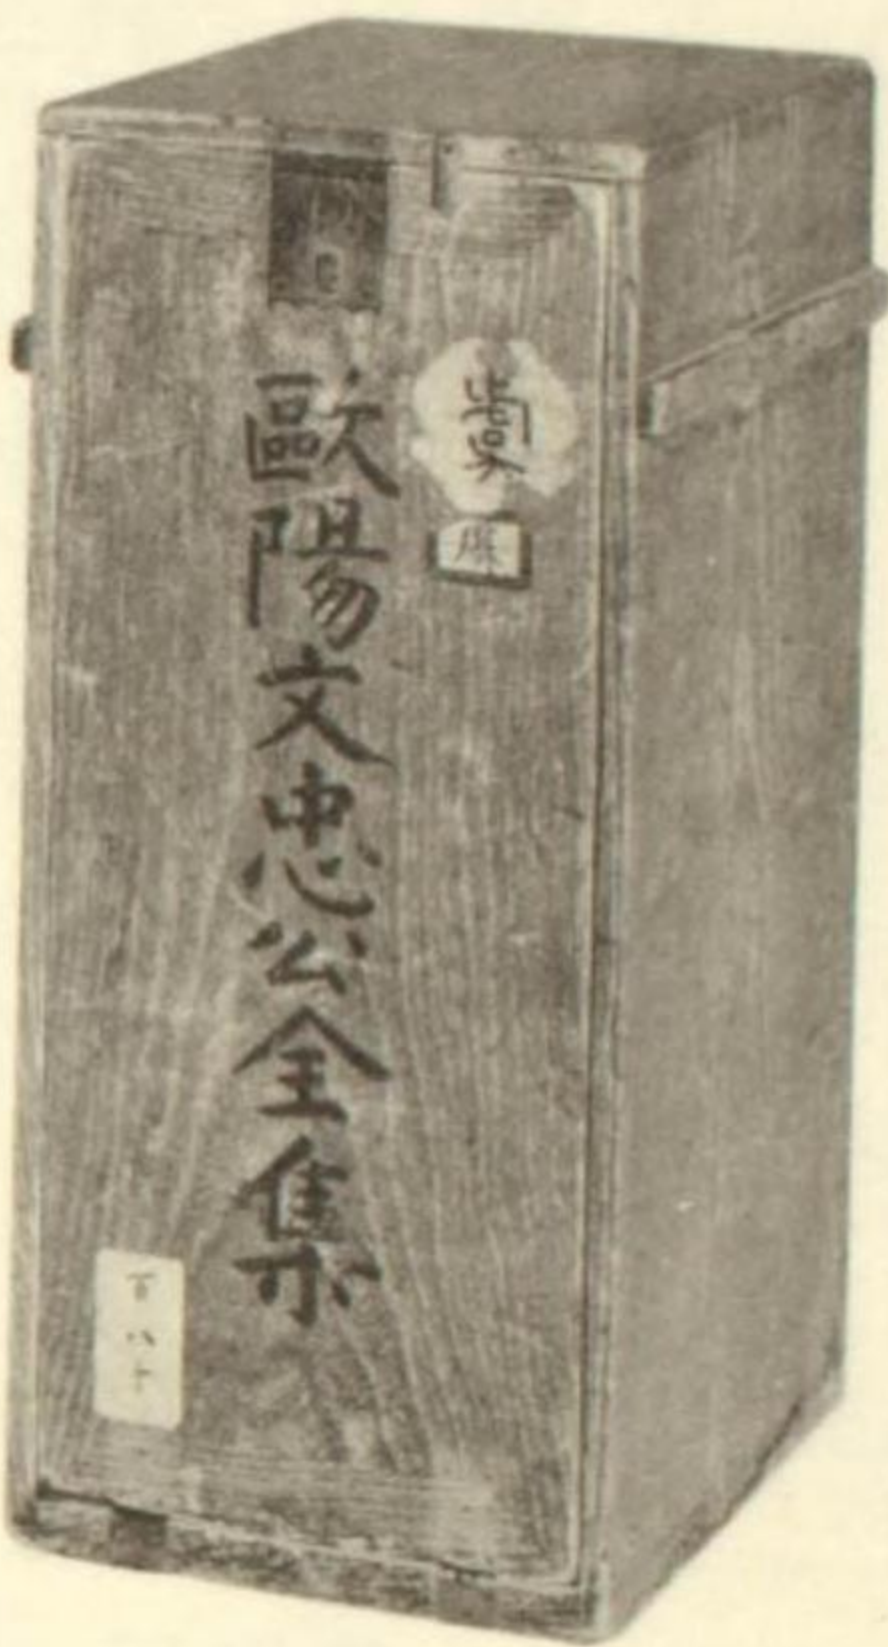 歐陽文忠公全集
百八十